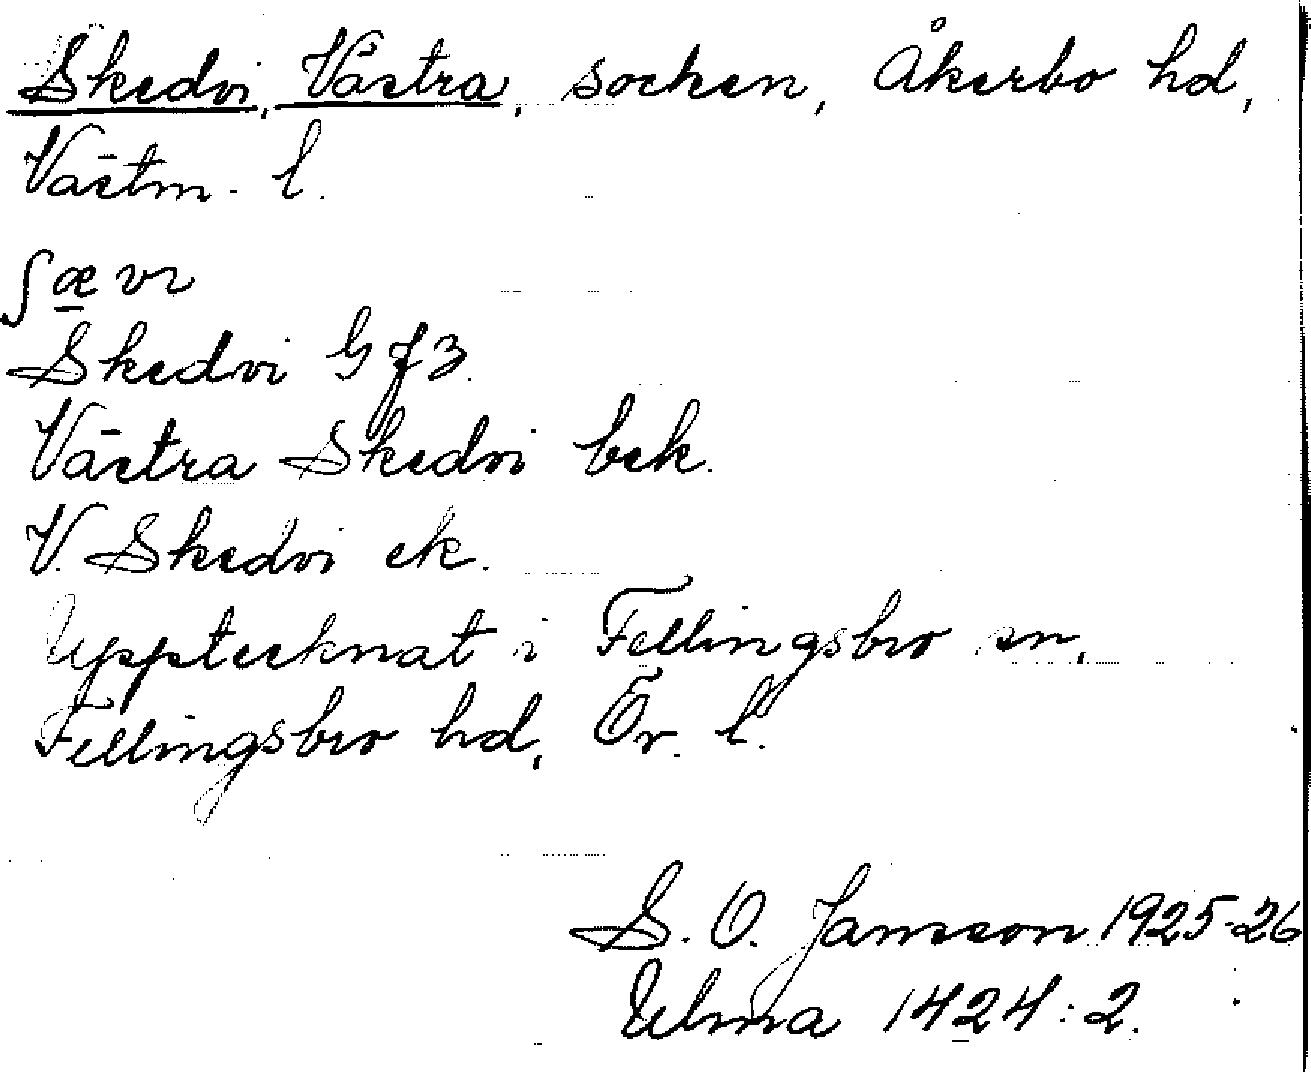 Skedvi, Västra, socken, Åkerbo hd,
Västm. l.
ʃævı
Skedvi GJ3.
Västra Skedvi bek.
V. Skedvi ek.
Upptecknat i Fellingsbro sn,
Fellingsbro hd, Ör. l.
S. O. Jansson 1925-26
Ulma 1424:2.